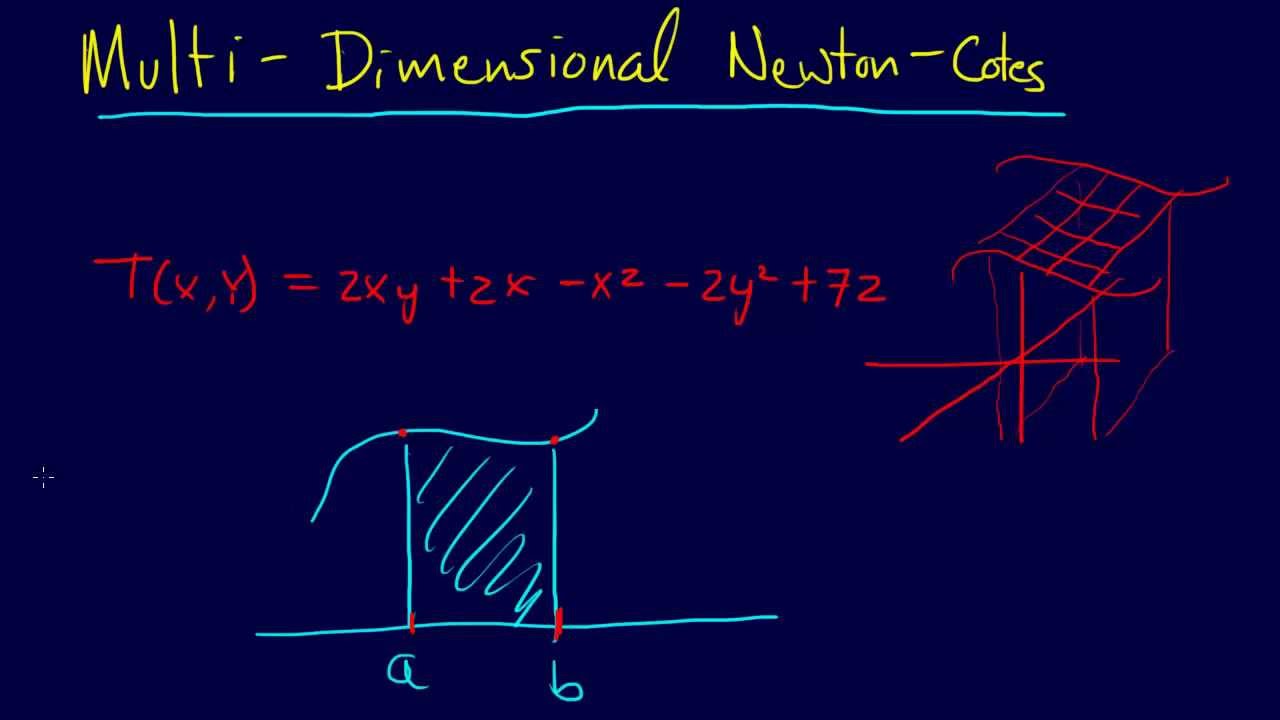 Multi-Dimensional Newton-Cotes
T(x,y) = 2xy + 2x - x2 - 2y² + 72
a
b